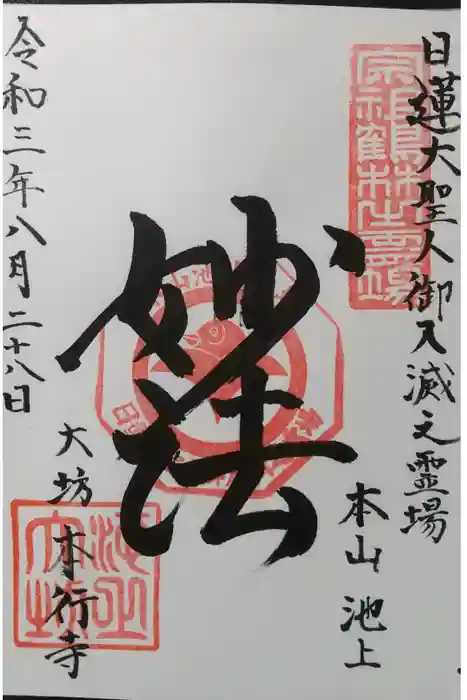 日蓮大聖人御入滅之霊場
宗祖鶴林之霊場
本山 池上
妙法
大坊 本行寺
令和三年八月二十八日